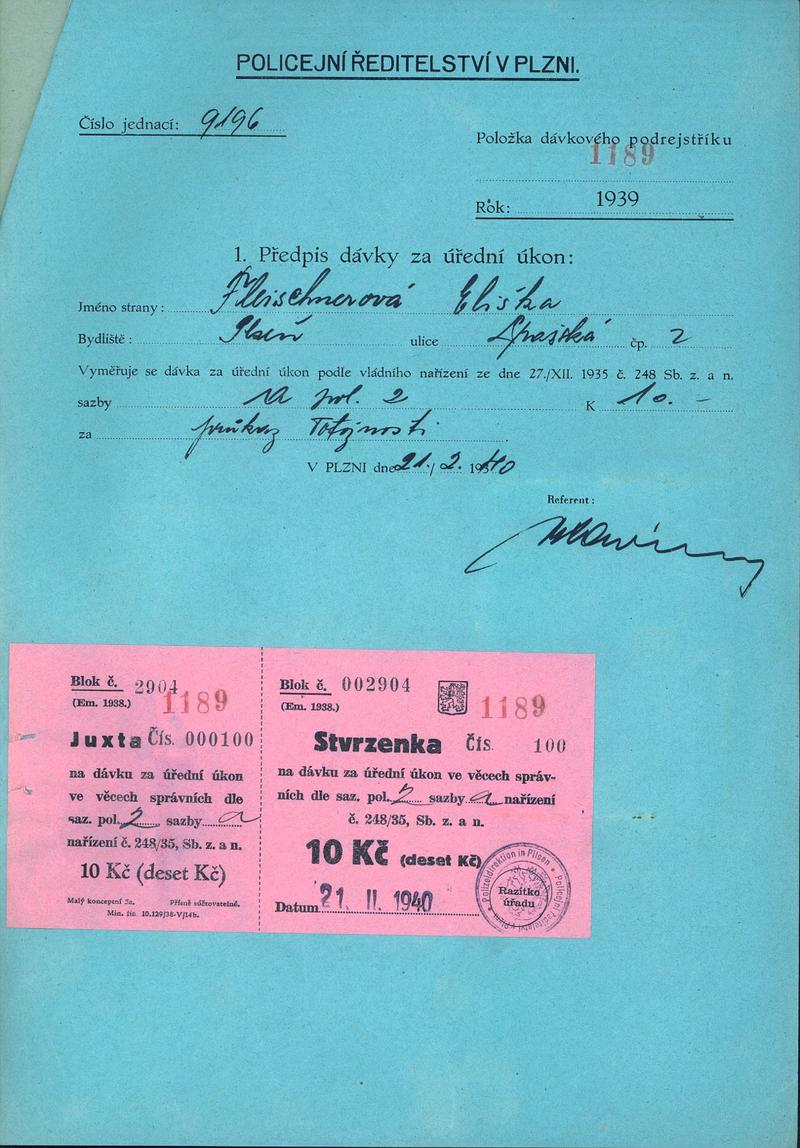 POLICEJNÍ ŘEDITELSTVÍ V PLZNI.
Číslo jednací: 9196
Položka dávkového podrejstříku
1189
Rok: 1939
1. Předpis dávky za úřední úkon:
Jméno strany: Fleischnerová Eliška
Bydliště: Plzeň ulice čp. 2
Vyměřuje se dávka za úřední úkon podle vládního nařízení ze dne 27./XII. 1935 č. 248 Sb. z. a n.
sazby a pol. 2 K 10.-
za průkaz Totožnosti
V PLZNI dne 21./2. 1940
Referent:
Blok č. 2904
1189
(Em. 1938.)
Juxta Čís. 000100
na dávku za úřední úkon
ve věcech správních dle
saz. pol. 2 sazby a
nařízení č. 248/35, Sb. z. a n.
10 Kč (deset Kč)
Malý koncepční 3a. Přísně súčtovatelné.
Min. fin. 10.129/38-V/14b.
Blok č. 002904
(Em. 1938.)
1189
Stvrzenka čís. 100
na dávku za úřední úkon ve věcech správ-
ních dle saz. pol. 2 sazby a nařízení
č. 248/35, Sb. z. a n.
10 Kč (deset Kč)
Datum 21. II. 1940
Polizeidirektion in Pilsen * Policejní ředitelství v Plzni *
Razítko
úřadu